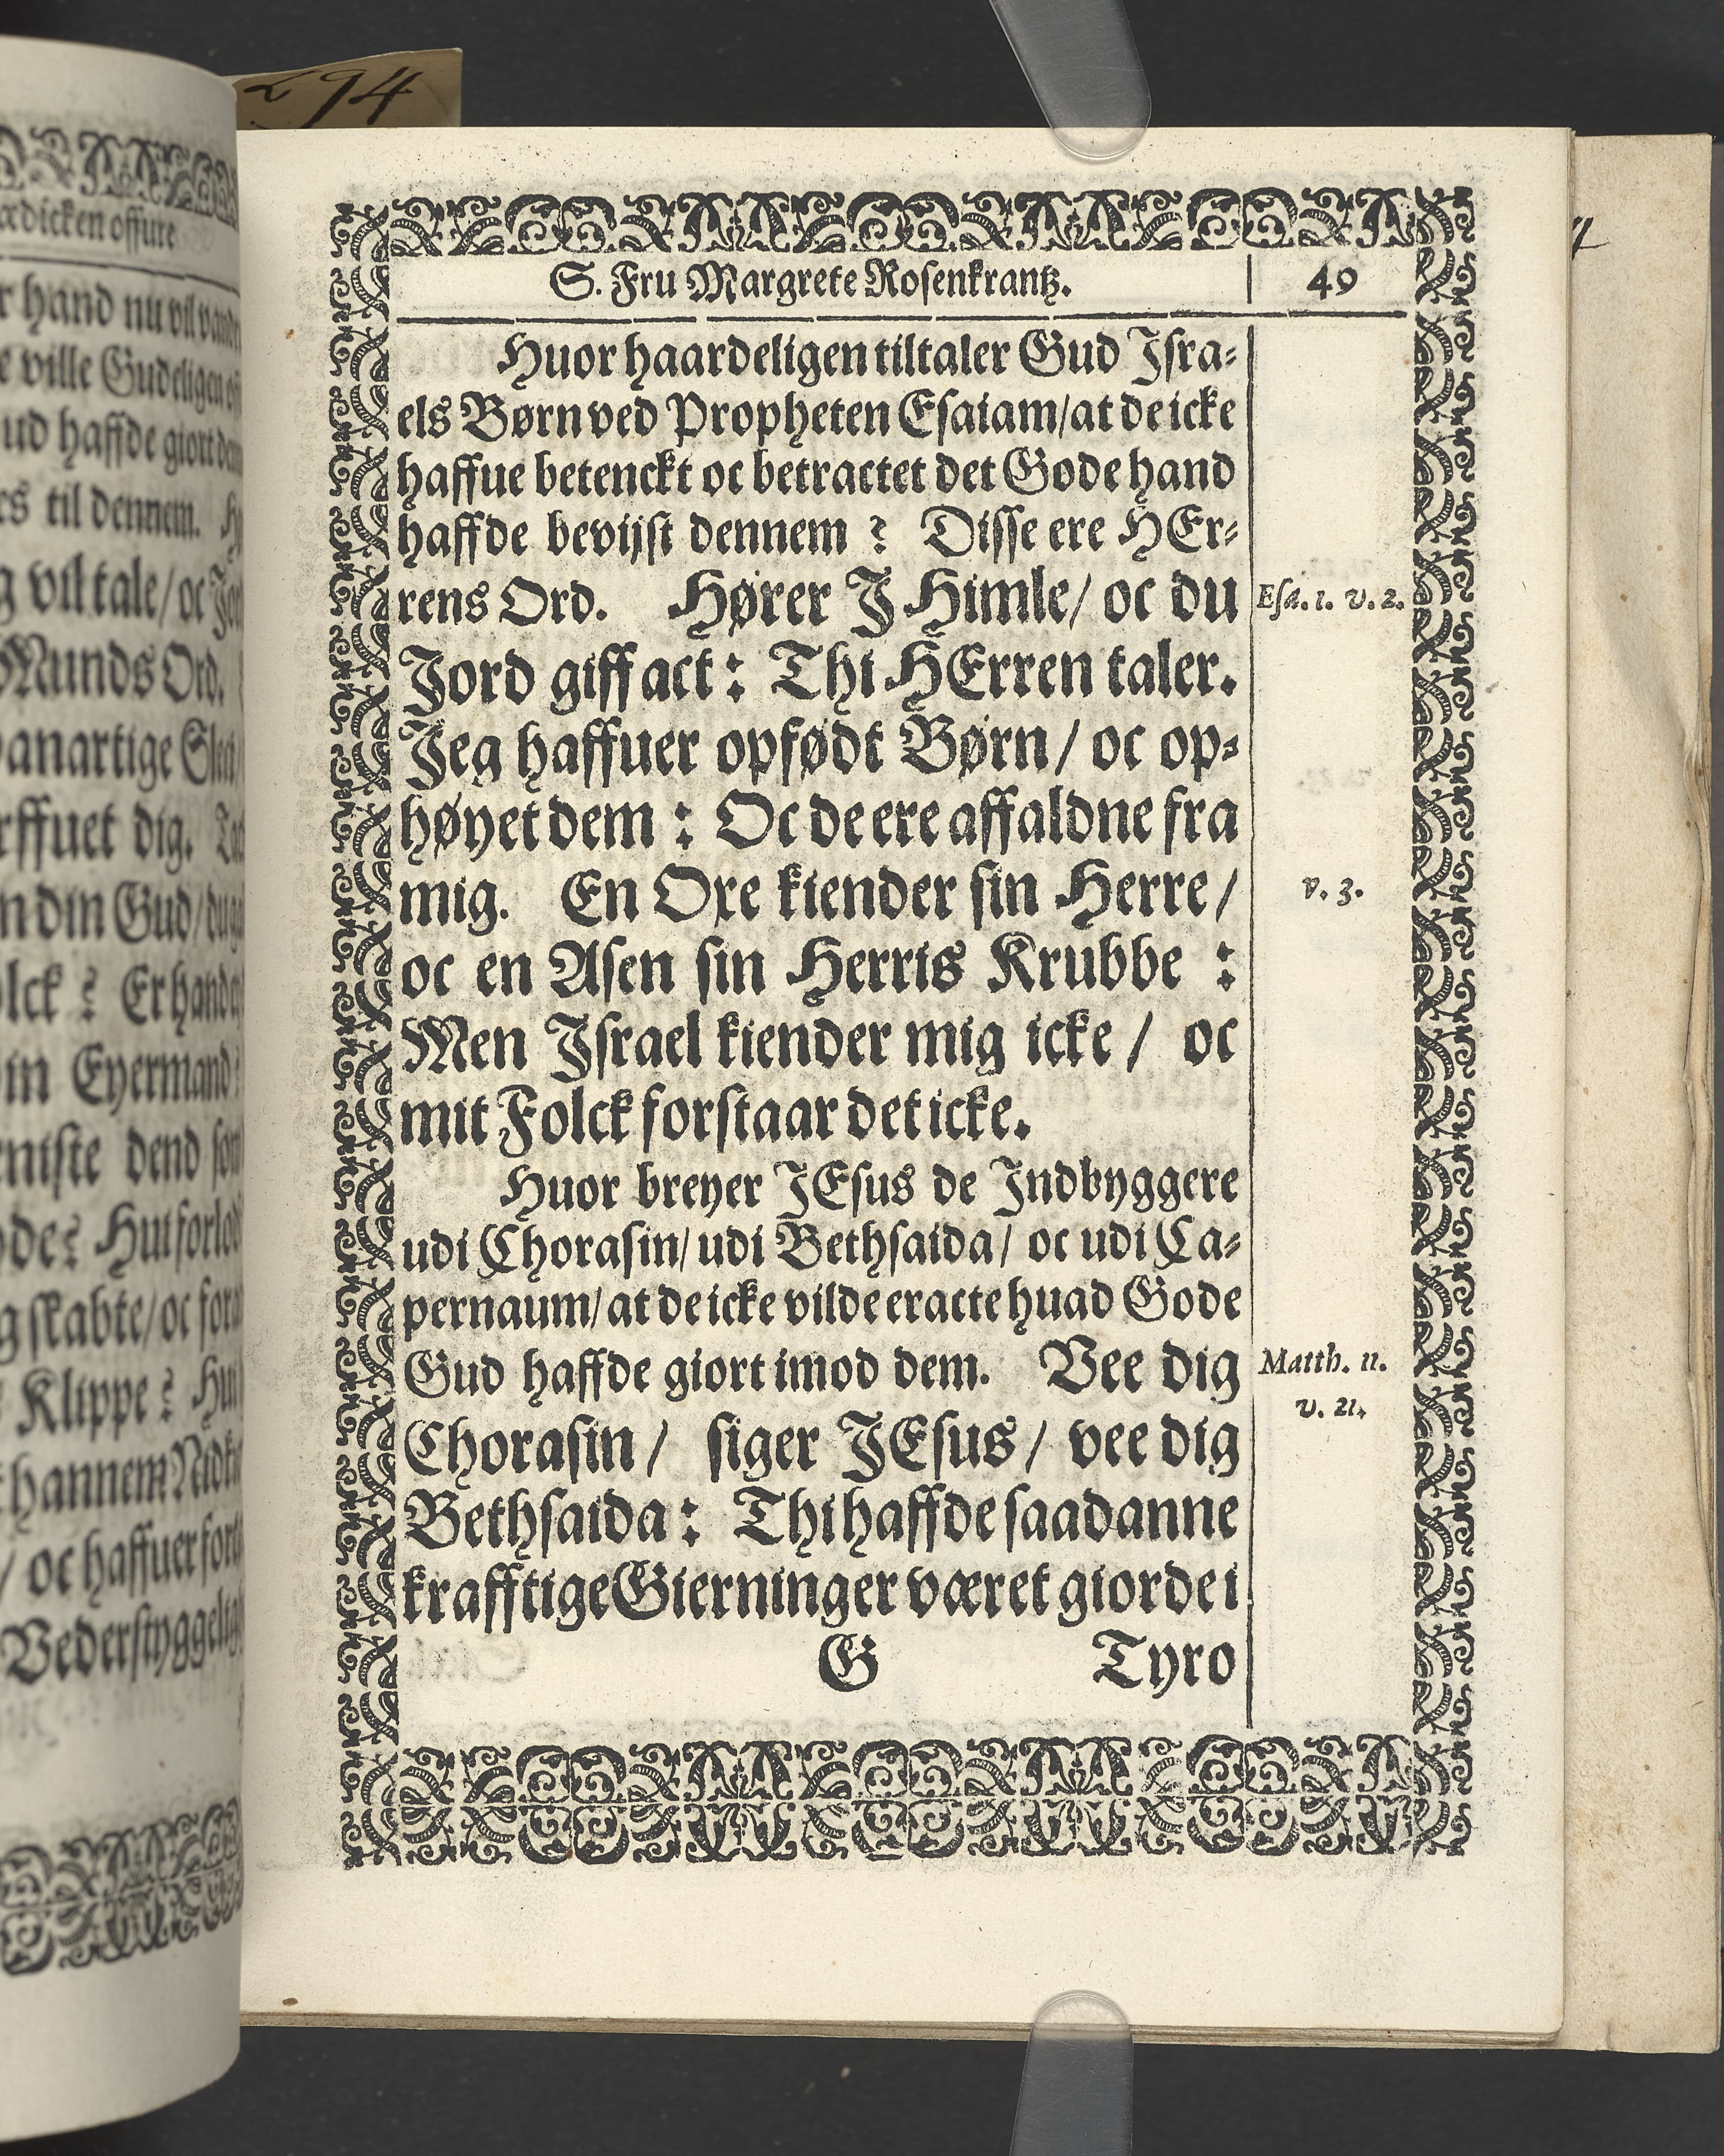 294
ædicken offure
r hand nu vil
e ville Gudeligen
ud haffde giort
rs til dennem.
g vil tale/ oc
Munds Ord.
anartige
rffuet dig.
n din Gud/
lck?
in Eyermand:
niste dend
ode?
g skabte/ oc
Klippe?
hannem
/ oc haffuer
S. Fru Margrete Rosenkrantz.
49
Huor haardeligen tiltaler Gud Isra-
els Børn ved Propheten Esaiam/ at de icke
haffue betenckt oc betractet det Gode hand
haffde bevijst dennem? Disse ere HEr-
rens Ord. Hører I Himle/ oc du
Esa. 1. v. 2.
Jord giff act: Thi HErren taler.
Jeg haffuer opfødt Børn/ oc op-
høyet dem: Oc de ere affaldne fra
mig. En Oxe kiender sin Herre/
v. 3.
oc en Asen sin Herris Krubbe:
Men Israel kiender mig icke/ oc
mit Folck forstaar det icke.
Huor breyer JEsus de Indbyggere
udi Chorasin/ udi Bethsaida/ oc udi Ca-
pernaum/ at de icke vilde eracte huad Gode
Gud haffde giort imod dem. Vee dig
Matth. 11.
v. 21.
Chorasin/ siger JEsus/ vee dig
Bethsaida: Thi haffde saadanne
krafftige Gierninger været giorde i
G
Tyro